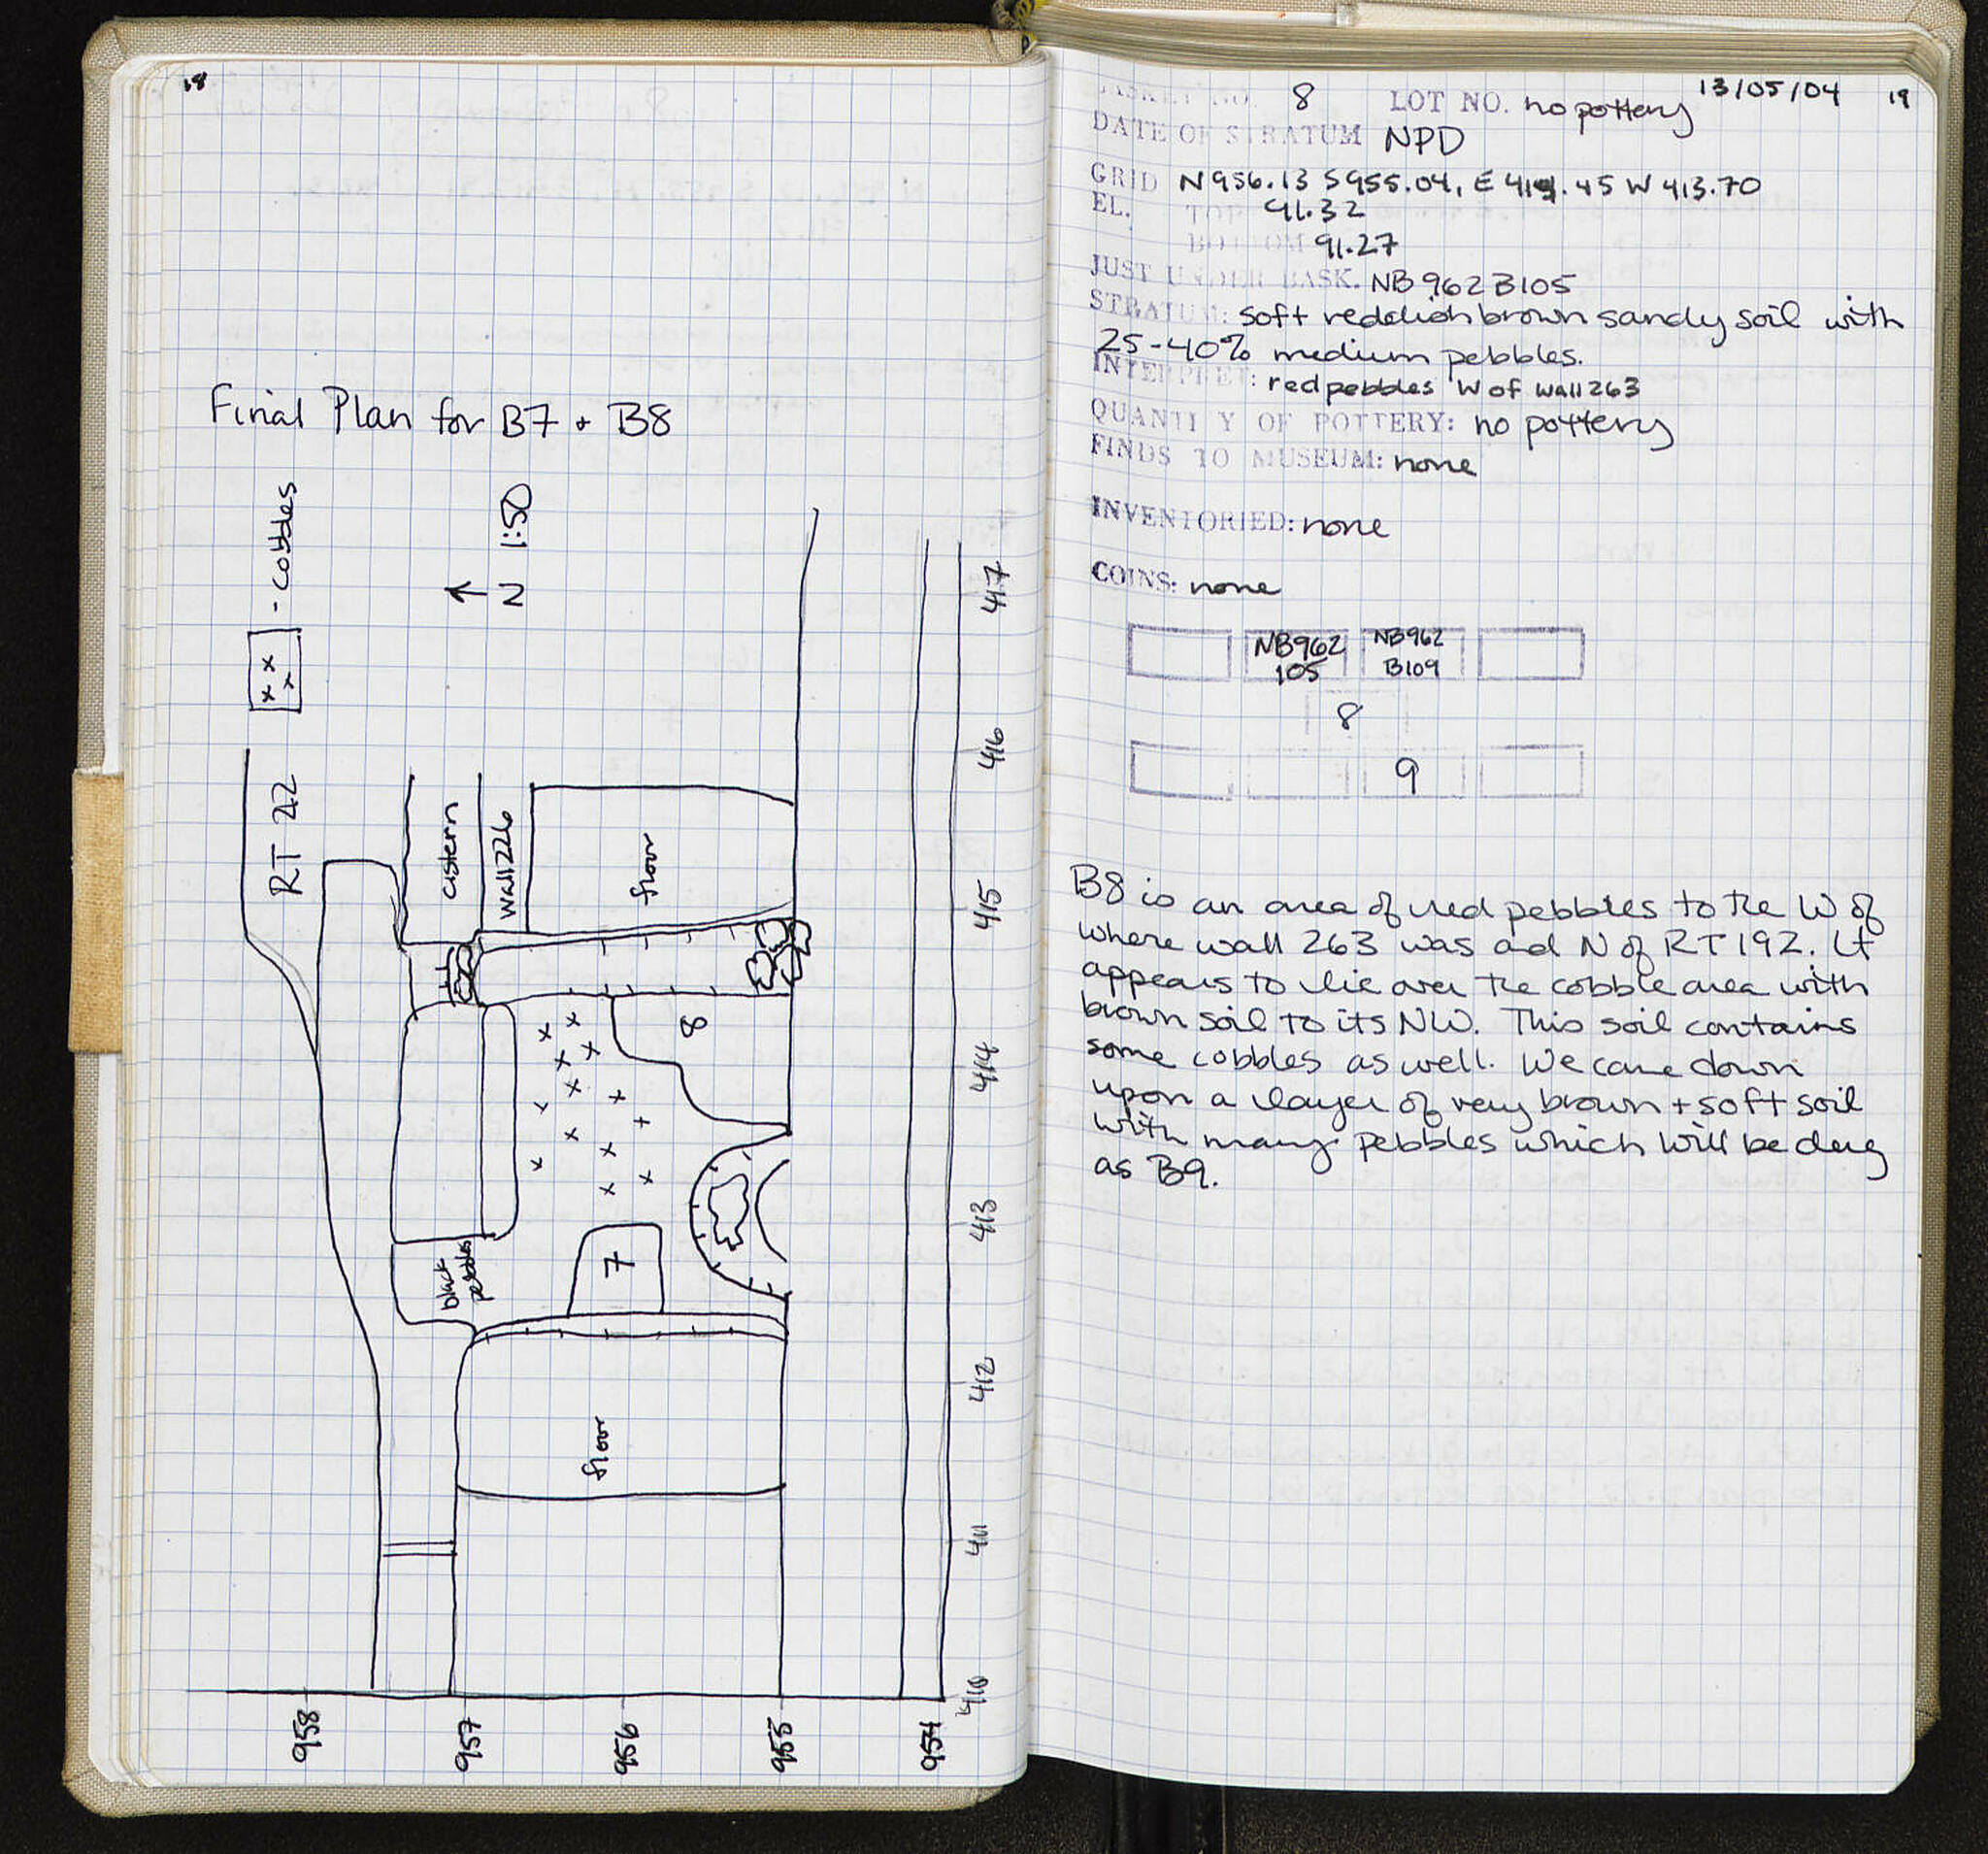 18
Final Plan for B7 + B8
- cobbles
N 1:50
RT 22
cistern
wall 226
floor
8
7
black
pebbles
floor
958
957
956
955
954
410
411
412
413
414
415
416
417
13/05/04 19
BASKET NO. 8 LOT NO. no pottery
DATE OF STRATUM NPD
GRID N956.13 S955.04, E 414.45 W 413.70
EL. TOP 91.32
BOTTOM 91.27
JUST UNDER BASK. NB962 B105
STRATUM: soft reddish brown sandy soil with
25-40% medium pebbles.
INTERPRET: red pebbles W of wall 263
QUANTITY OF POTTERY: no pottery
FINDS TO MUSEUM: none
INVENTORIED: none
COINS: none
NB962
105
NB962
B109
8
9
B8 is an area of red pebbles to the W of
where wall 263 was and N of RT 192. It
appears to lie over the cobble area with
brown soil to its NW. This soil contains
some cobbles as well. We came down
upon a layer of very brown + soft soil
with many pebbles which will be dug
as B9.